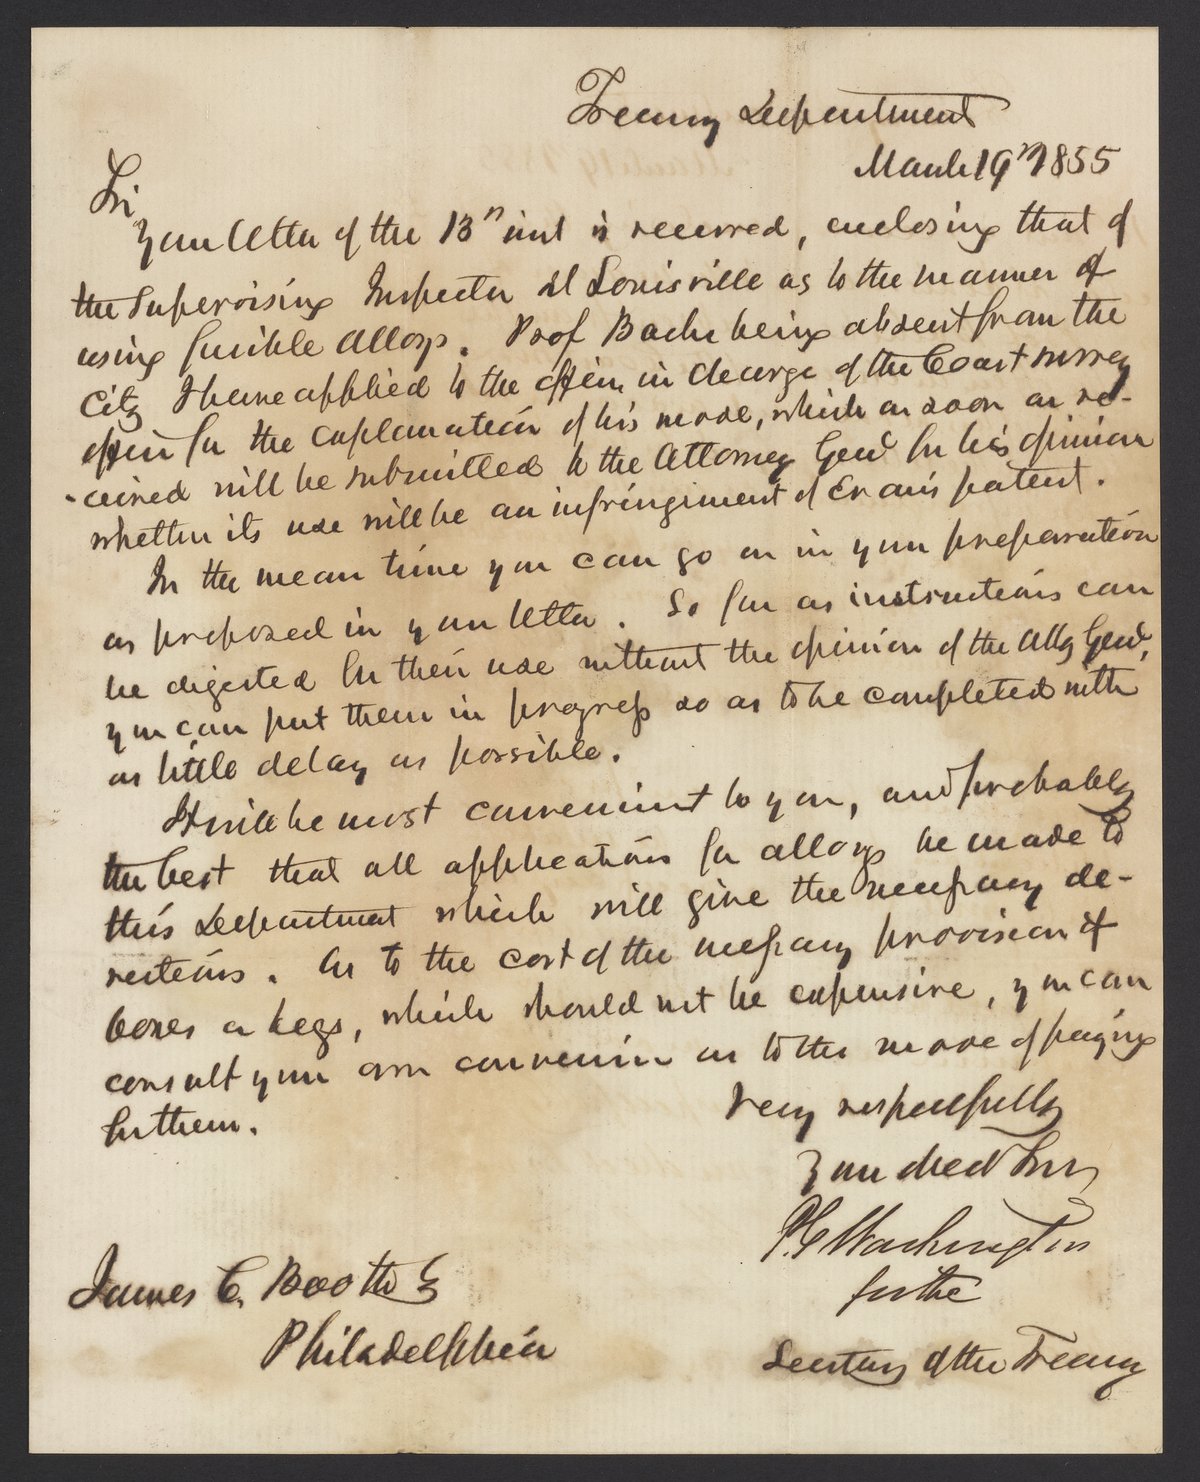 Treasury Department
March 19th 1855
Sir
Your letter of the 13th inst is received, enclosing that of
the Supervising Inspector at Louisville as to the manner of
using fusible alloys. Prof Bache being absent from the
City I have applied to the officer in charge of the Coast survey
office for the explanation of his mode, which as soon as re-
-ceived will be submitted to the Attorney Genl for his opinion
whether its use will be an infringement of Evans patent.
In the mean time you can go on in your preparation
as proposed in your letter. So far as instructions can
be digested for their use without the opinion of the Atty Genl,
you can put them in progress so as to be completed with
as little delay as possible.
It will be most convenient to you, and probably
the best that all applications for alloys be made to
this Department which will give the necessary di-
rections. As to the cost of the necessary provision of
boxes or kegs, which should not be expensive, you can
consult your own convenience as to the mode of paying
for them.
Very respectfully
Your obed Serv
P.G Washington
for the
Secretary of the Treasury
James C. Booth
Philadelphia